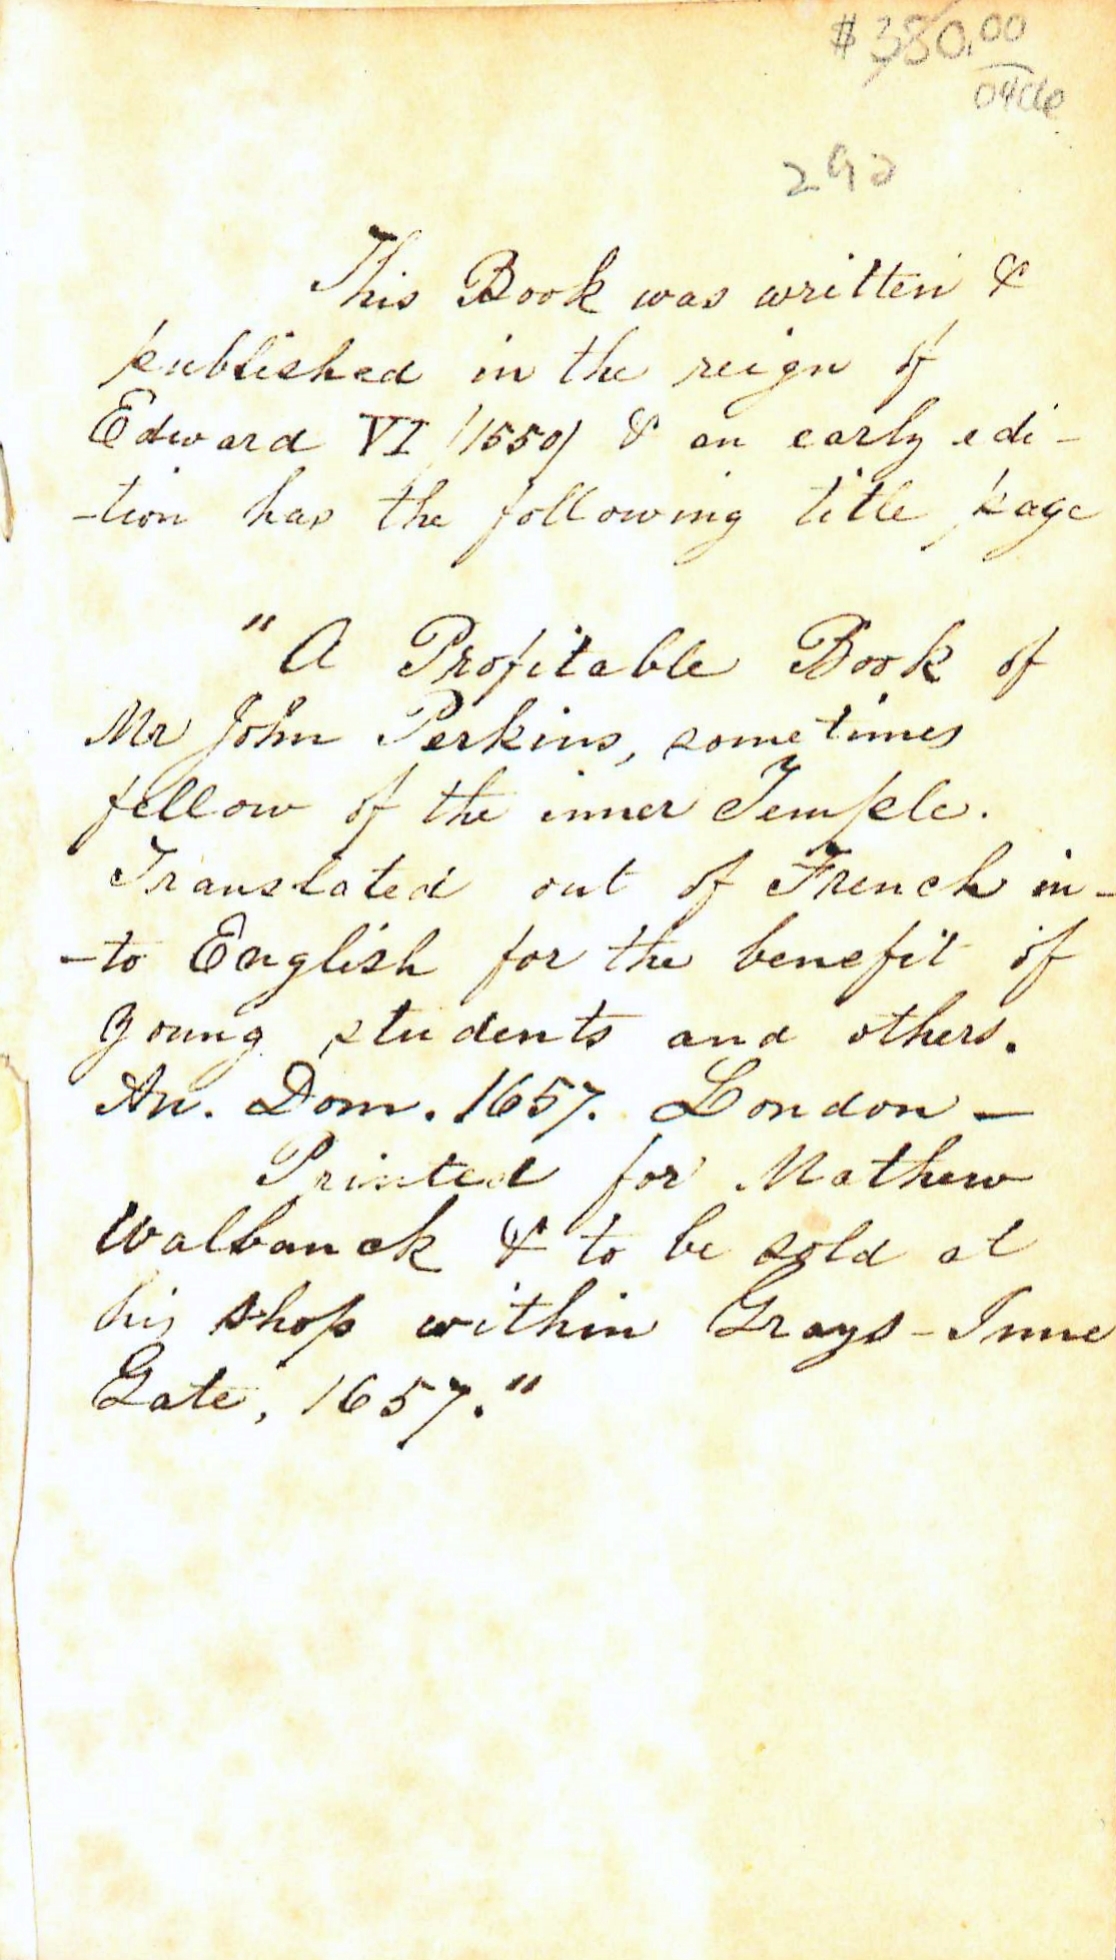 $380.00
290
This Book was written &
published in the reign of
Edward VI (1550) & an early edi-
-tion has the following title page
"A Profitable Book of
Mr John Perkins, sometimes
fellow of the inner Temple.
Translated out of French in-
-to English for the benefit of
young students and others.
An. Dom. 1657. London -
Printed for Mathew
Walbanck & to be sold at
his shop within Grays-Inne
Gate, 1657."